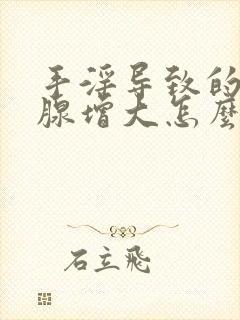 手淫导致的
腺增大怎麼
石立飛